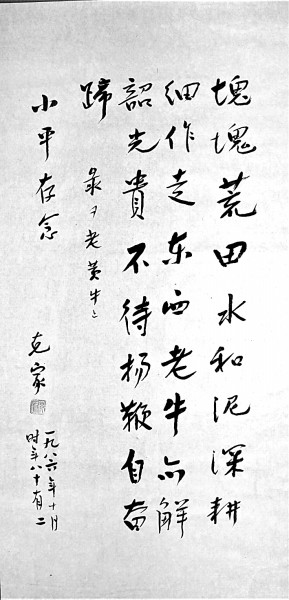 塊塊荒田水和泥深耕
细作走东西老牛亦解
韶光貴不待扬鞭自奋
蹄
录"老黄牛"
小平存念
克家
一九八六年十月
时年八十有二